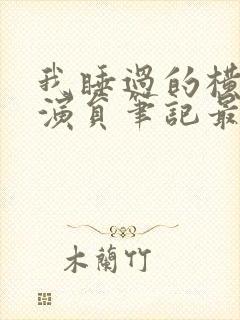 我睡過的橫
演員筆記最
木蘭竹